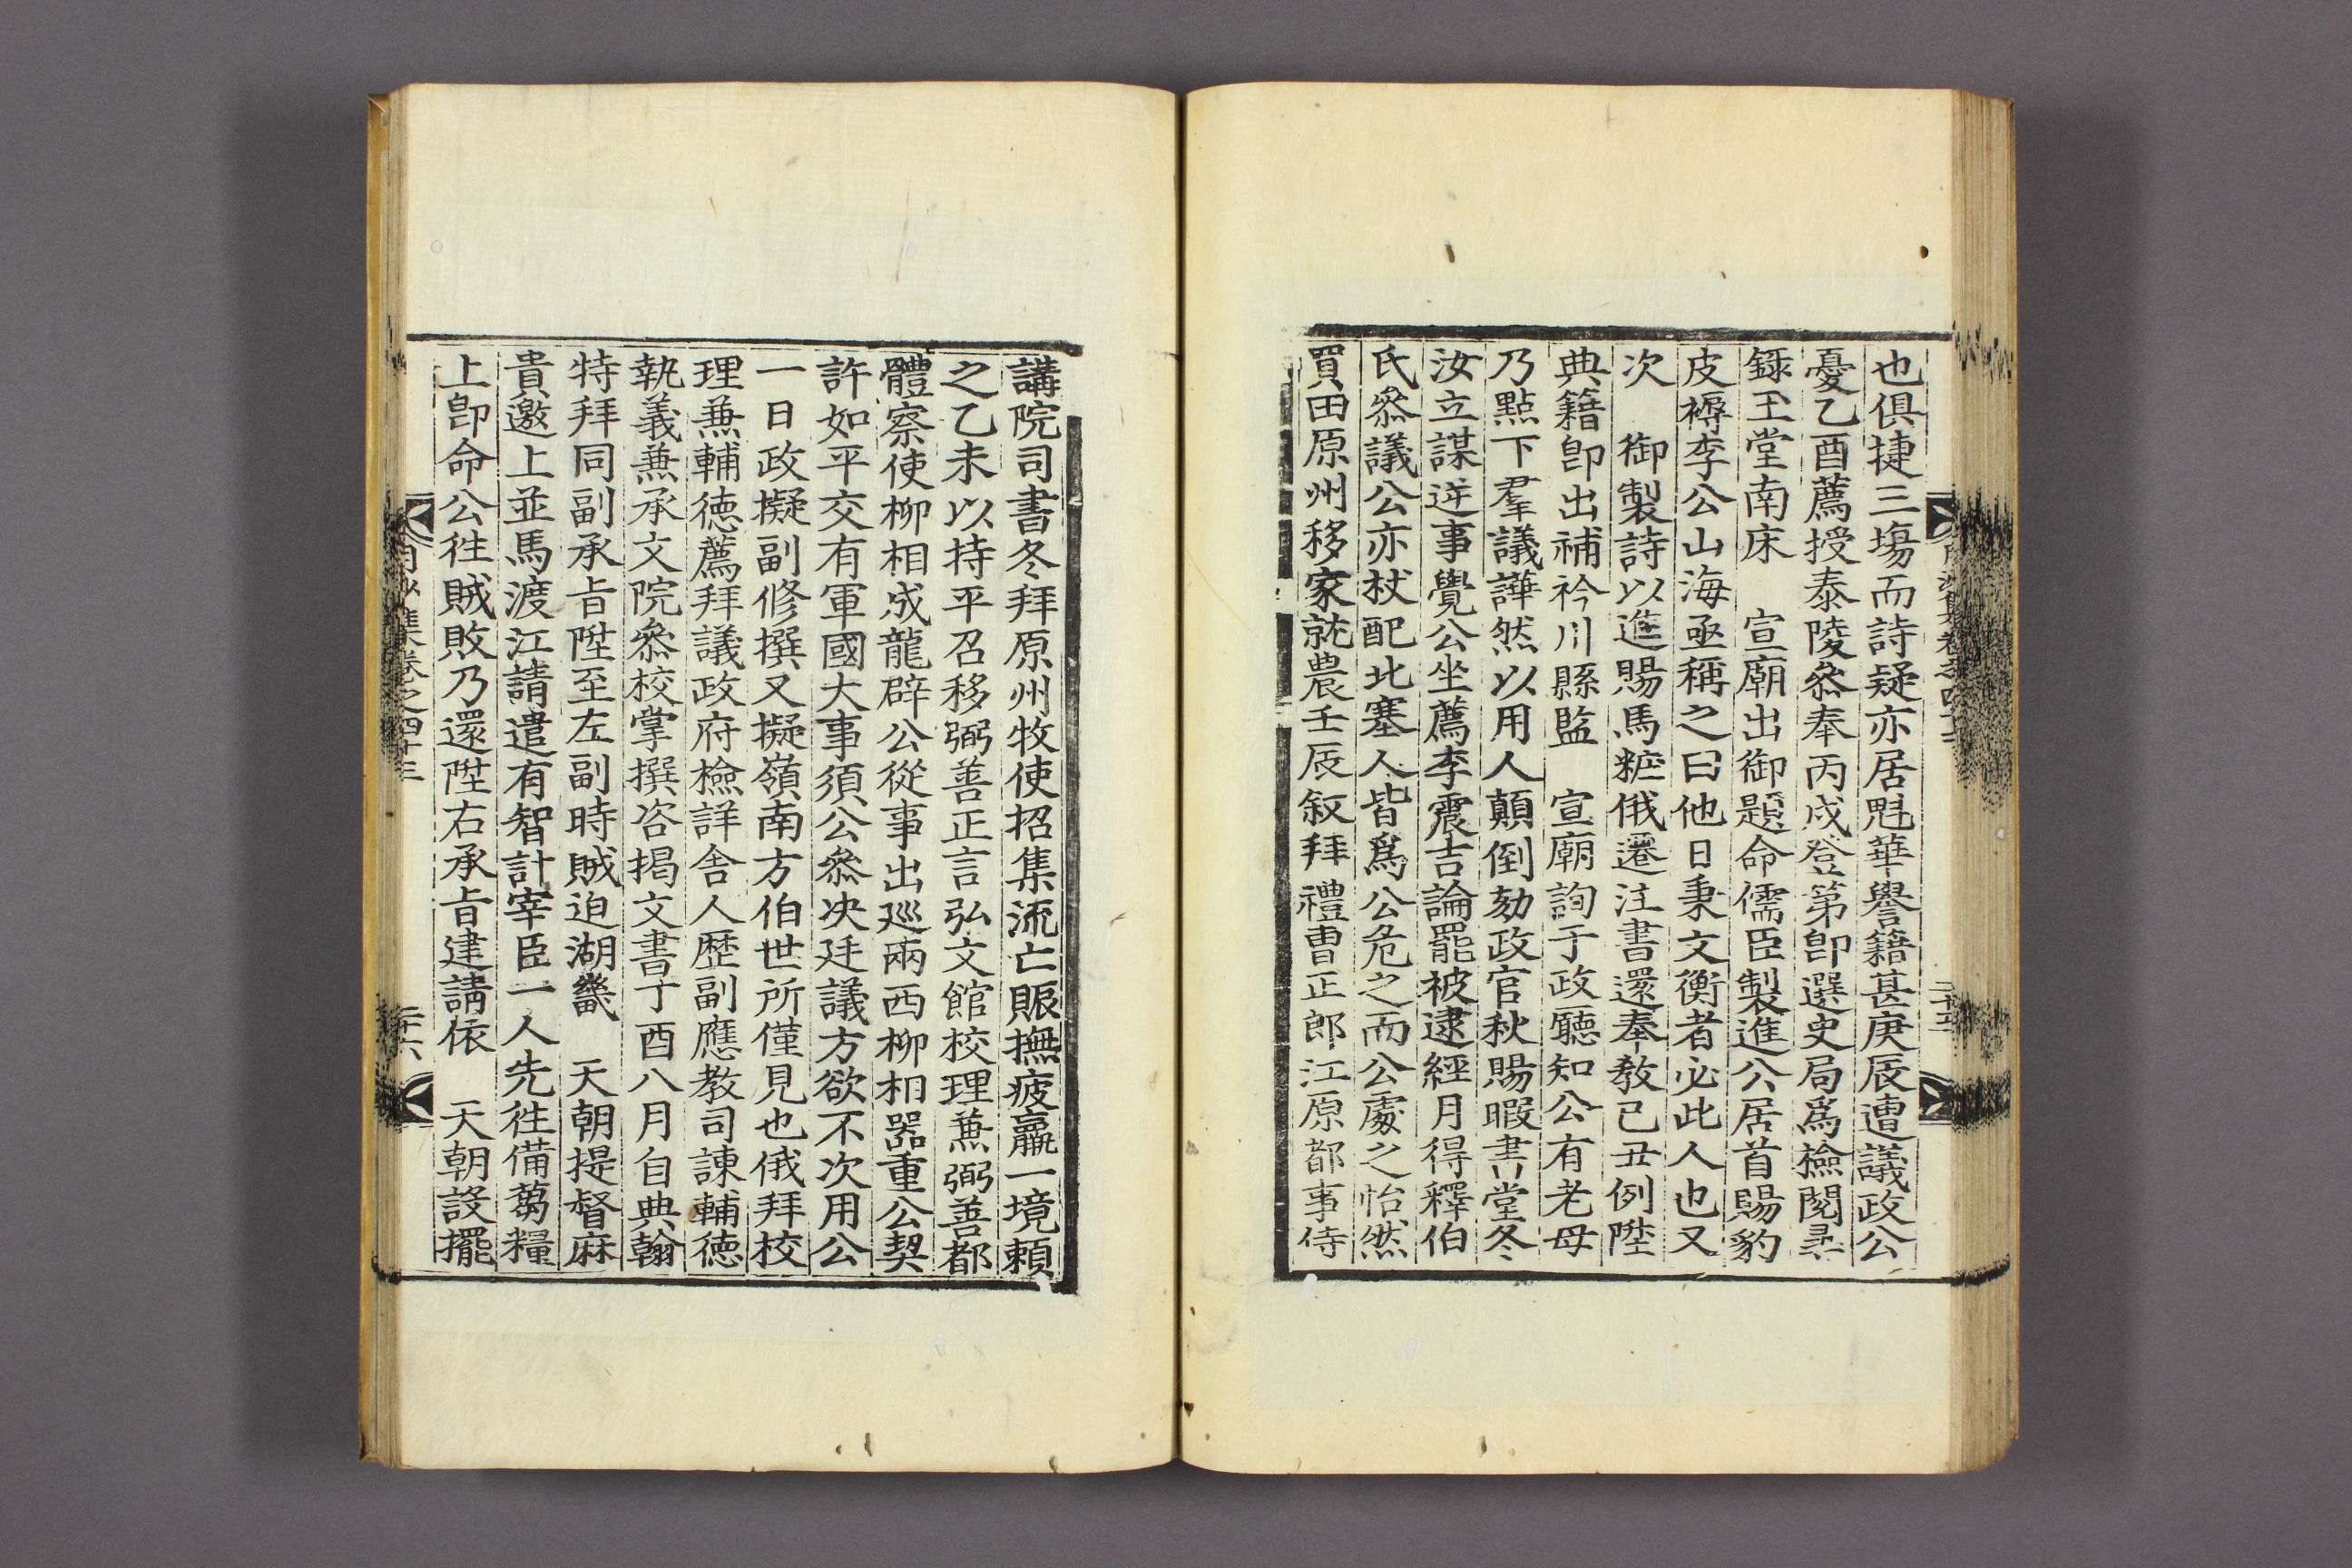 也俱捷三場而詩疑亦居魁華譽籍甚庚辰遭議政公
憂乙酉薦授泰陵叅奉丙戌登第卽選史局爲檢閱
錄玉堂南床　宣廟出御題命儒臣製進公居首賜豹
皮褥李公山海亟稱之曰他日秉文衡者必此人也又
次　御製詩以進賜馬粧俄遷注書還奉敎己丑例陞
典籍卽出補衿川縣監　宣廟詢于政廳知公有老母
乃點下羣議譁然以用人顚倒劾政官秋賜暇書堂冬
汝立謀逆事覺公坐薦李震吉論罷被逮經月得釋伯
氏叅議公亦杖配北塞人皆爲公危之而公處之怡然
買田原州移家就農壬辰叙拜禮曹正郎江原都事侍
講院司書冬拜原州牧使招集流亡賑撫疲羸一境賴
之乙未以持平召移弼善正言弘文館校理兼弼善都
體察使柳相成龍辟公從事出廵兩西柳相器重公契
許如平交有軍國大事須公叅决廷議方欲不次用公
一日政擬副修撰又擬嶺南方伯世所僅見也俄拜校
理兼輔德薦拜議政府檢詳舍人歷副應敎司諫輔德
執義兼承文院叅校掌撰咨揭文書丁酉八月自典翰
特拜同副承旨陞至左副時賊迫湖畿　天朝提督麻
貴邀上並馬渡江請遣有智計宰臣一人先往備芻糧
上卽命公往賊敗乃還陞右承旨建請依　天朝設擺
集卷之四十三
二十六